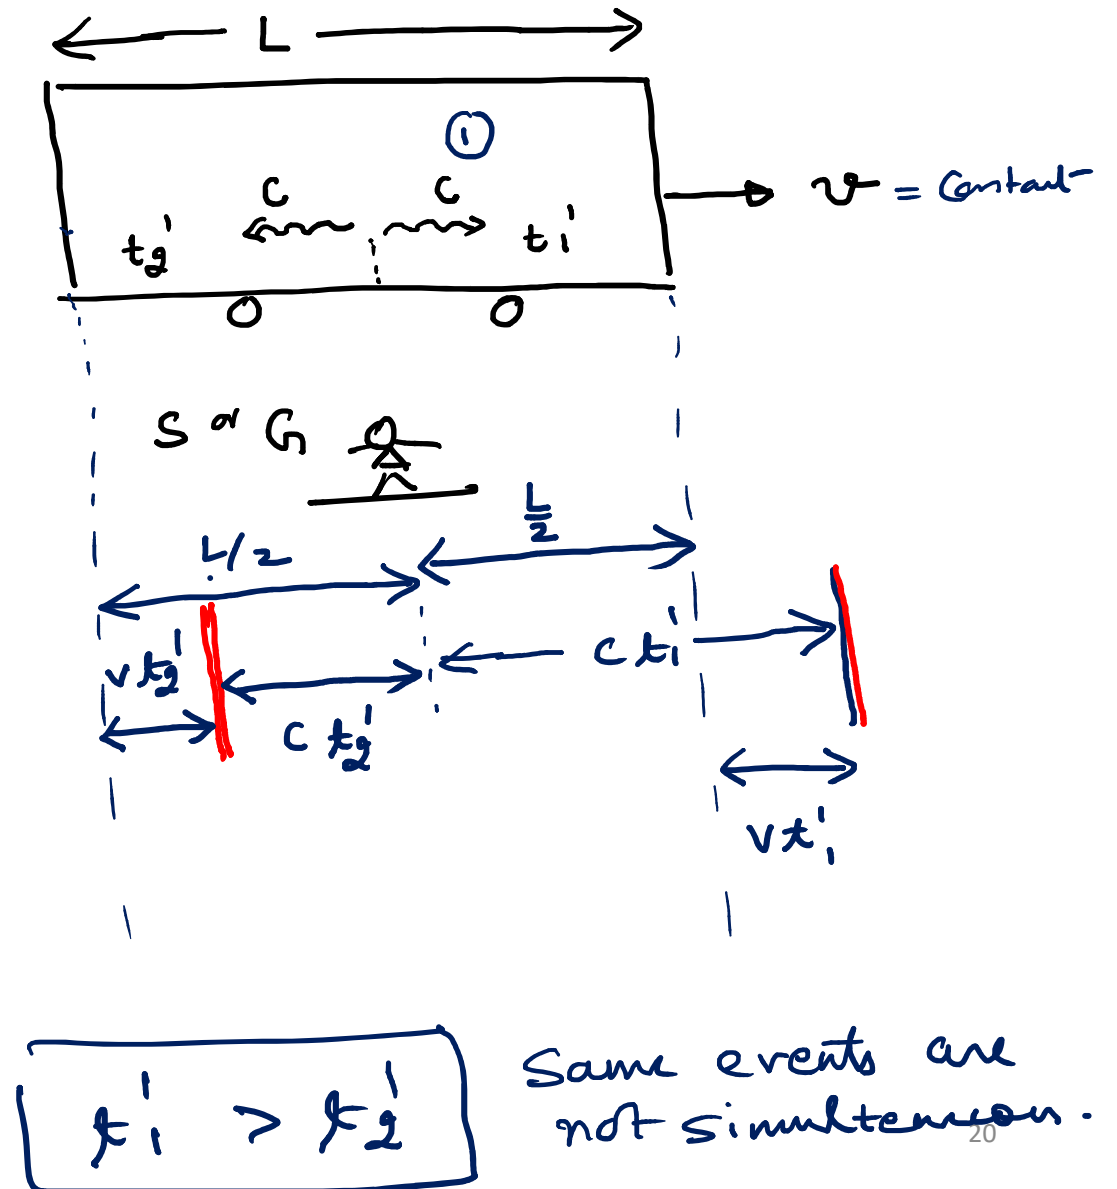 L
①
c c
v = Constant
t₂' t₁'
S or G
L/2
L/2
c t₁'
v t₂'
c t₂'
v t₁'
t₁' > t₂'
Same events are
not simulteneous.
20